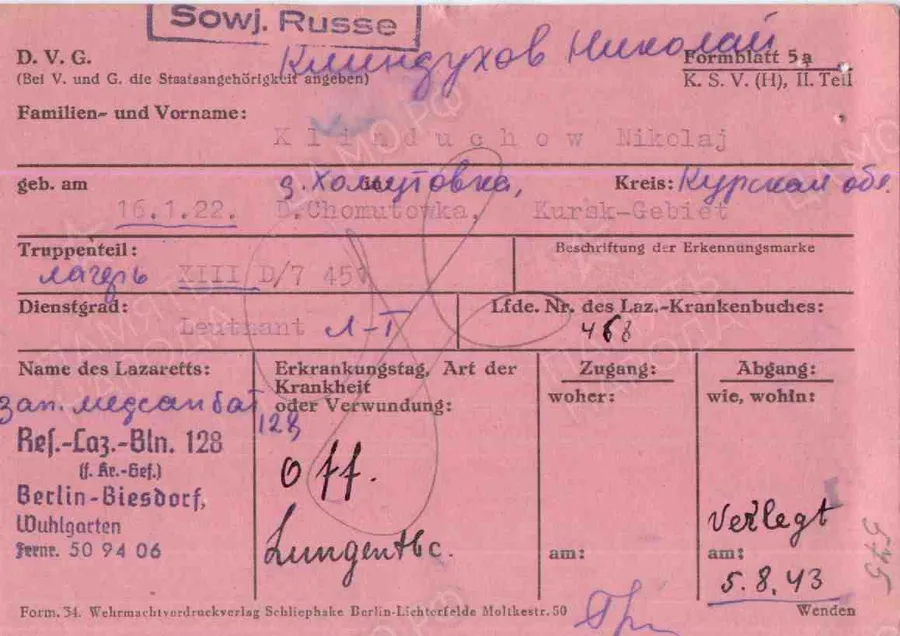 Sowj. Russe
D. V. G.
Клиндухов Николай
Formblatt 5a
(Bei V. und G. die Staatsangehörigkeit angeben)
K. S. V. (H), II. Teil
Familien- und Vorname:
Klinduchow Nikolaj
geb. am
д. Хомутовка,
Kreis: Курская обл.
16.1.22. D.Chomutowka, Kursk-Gebiet
Truppenteil:
Beschriftung der Erkennungsmarke
лагерь XIII D/7 45
Dienstgrad:
Lfde. Nr. des Laz.-Krankenbuches:
Leuthant Л-Т
468
Name des Lazaretts:
зап. медсанбат 128
Ref.-Laz.-Bln. 128
(f. Kr.-Gef.)
Berlin-Biesdorf,
Wuhlgarten
Fernr. 50 94 06
Erkrankungstag, Art der
Krankheit
oder Verwundung:
Off.
Lungentbc.
Zugang:
woher:
am:
Abgang:
wie, wohin:
Verlegt
am:
5.8.43
545
Form. 34. Wehrmachtvordruckverlag Schliephake Berlin-Lichterfelde Moltkestr. 50
Wenden
ПАМЯТЬ НАРОДА
ЦАМО.РФ